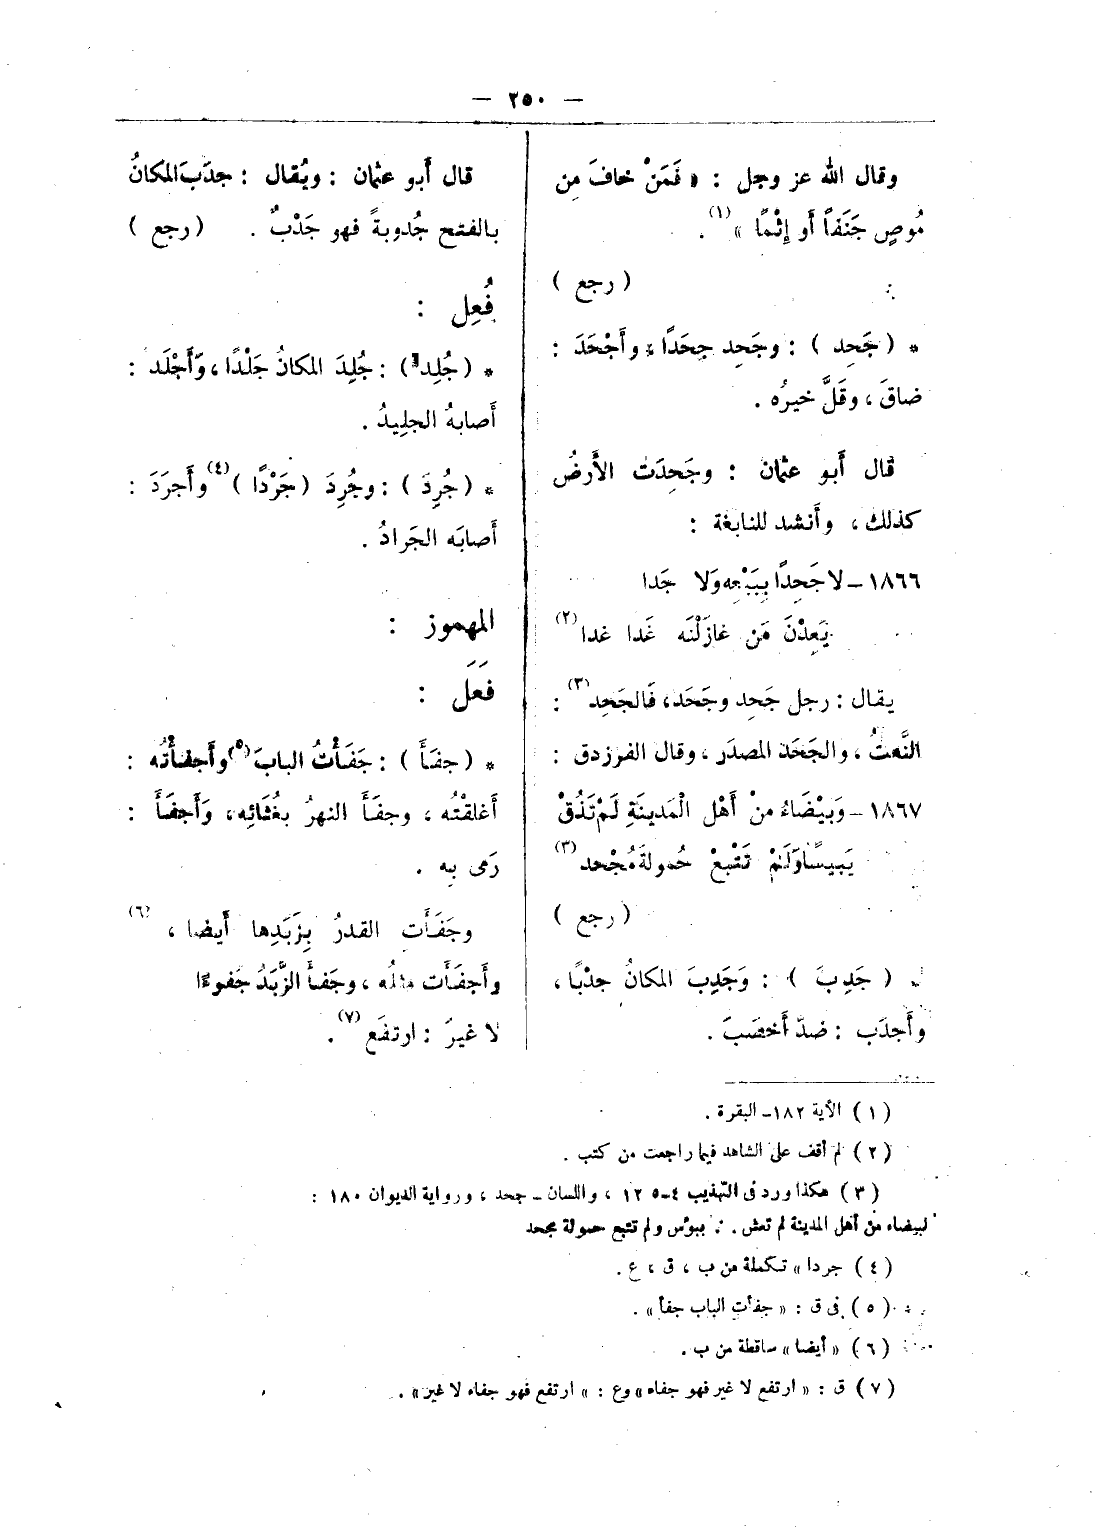 — ٢٥٠ —
وقال الله عز وجل : « فَمَنْ خافَ مِن
مُوصٍ جَنَفاً أَو إِثْمًا » (١) .
( رجع )
* ( جَحِد ) : وجَحِد جحَدًا ، وأَجْحَدَ :
ضاقَ ، وقَلَّ خيرُه .
قال أَبو عثمان : وجَحِدَت الأَرضُ
كذلك ، وأَنشد للنابغة :
١٨٦٦ – لا جَحِدًا وَلا جَدا
يَعِدْنَ مَن غازَلْنَه غَدا غدا (٢)
يقال : رجل جَحِد وجَحَد ، فَالجَحِد (٣) :
النَّعتُ ، والجَحَدَ المصدَر ، وقال الفرزدق :
١٨٦٧ – وَبَيْضَاءُ منْ أَهْل الْمَدينَةِ لَمْ تَذُقْ
يَبِيسًا وَلَمْ تَتْبعْ حُمولةَ مُجْحد (٣)
( رجع )
* ( جَدِبَ ) : وَجَدِبَ المكانُ جدْبًا ،
وأَجدَب : ضدَّ أَخصَبَ .
قال أَبو عثمان : ويُقال : جدَبَ المكانُ
بالفتح جُدوبةً فهو جَدْبٌ . ( رجع )
فُعِل :
* ( جُلِد ) : جُلِدَ المكانُ جَلْدًا ، وَأَجْلَد :
أَصابهُ الجلِيدُ .
* ( جُرِدَ ) : وجُرِدَ ( جَرْدًا ) (٤) وأَجرَدَ :
أَصابَه الجَرادُ .
المهموز :
فَعَلَ :
* ( جفَأَ ) : جَفَأْتُ البابَ (٥) وأَجفأْتُه :
أَغلقْتُه ، وجفَأَ النهرُ بغُثَائِه ، وَأَجفَأَ :
رَمى بِه .
وجَفَأَتِ القدرُ بِزَبَدِها أَيضا ، (٦)
وأَجفَأَت مثلُه ، وجَفأَ الزَّبَدُ جَفوءًا
لا غيرَ : ارتفَع (٧) .
( ١ ) الآية ١٨٢ – البقرة .
( ٢ ) لم أقف على الشاهد فيما راجعت من كتب .
( ٣ ) هكذا ورد فى التهذيب ٤–١٢٥ ، واللسان – جحد ، ورواية الديوان ١٨٠ :
لبيضاء من أهل المدينة لم تعش . ∴ ببؤس ولم تتبع حمولة مجحد
( ٤ ) جردا » تكملة من ب ، ق ، ع .
( ٥ ) فى ق : « جفأت الباب جفأ » .
( ٦ ) « أيضا » ساقطة من ب .
( ٧ ) ق : « ارتفع لا غير فهو جفاء » وع : « ارتفع فهو جفاء لا غير » .